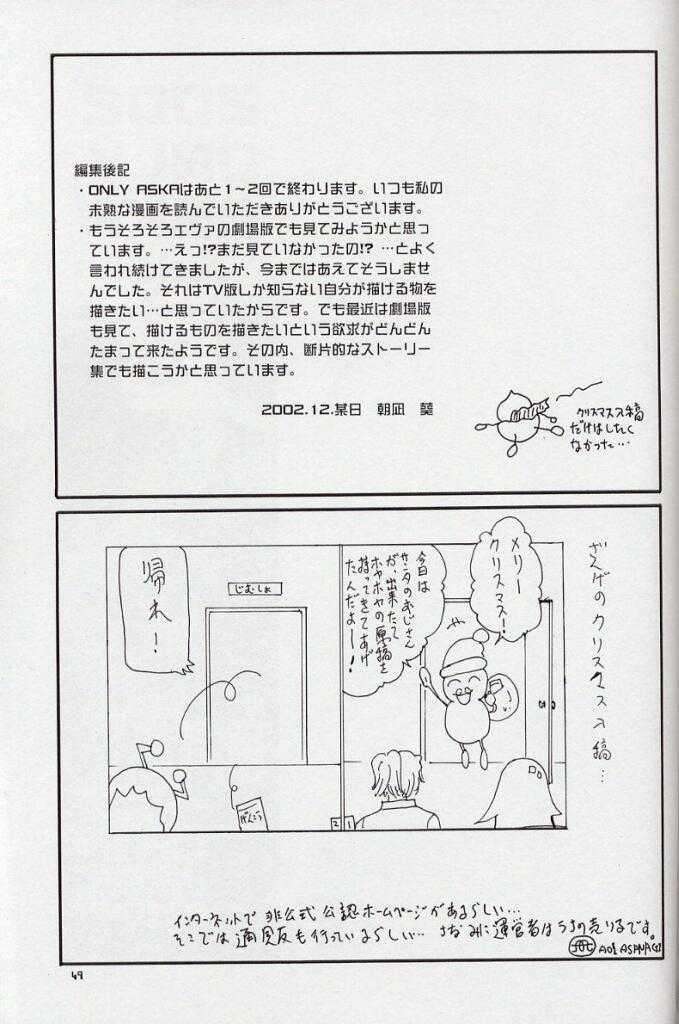 編集後記
・ONLY ASKAはあと1～2回で終わります。いつも私の
未熟な漫画を読んでいただきありがとうございます。
・もうそろそろエヴァの劇場版でも見てみようかと思っ
ています。…えっ!?まだ見ていなかったの!? …とよく
言われ続けてきましたが、今まではあえてそうしませ
んでした。それはTV版しか知らない自分が描ける物を
描きたい…と思っていたからです。でも最近は劇場版
も見て、描けるものを描きたいという欲求がどんどん
たまって来たようです。その内、断片的なストーリー
集でも描こうかと思っています。
2002.12.某日 朝凪 葵
クリスマス入稿
だけはしたく
なかった…
ざんげのクリスマス入稿…
メリー
クリスマス!
今日は
サンタのおじさん
が、出来たて
ホヤホヤの原稿を
持ってきてあげ
たんだよー!
1
帰れ!
じむしょ
げんこう
2
インターネットで 非公式 公認ホームページがあるらしい…
そこでは通販も行っているらしい… ちなみに運営者はうちの売り子です。
AOI ASANAGI
49